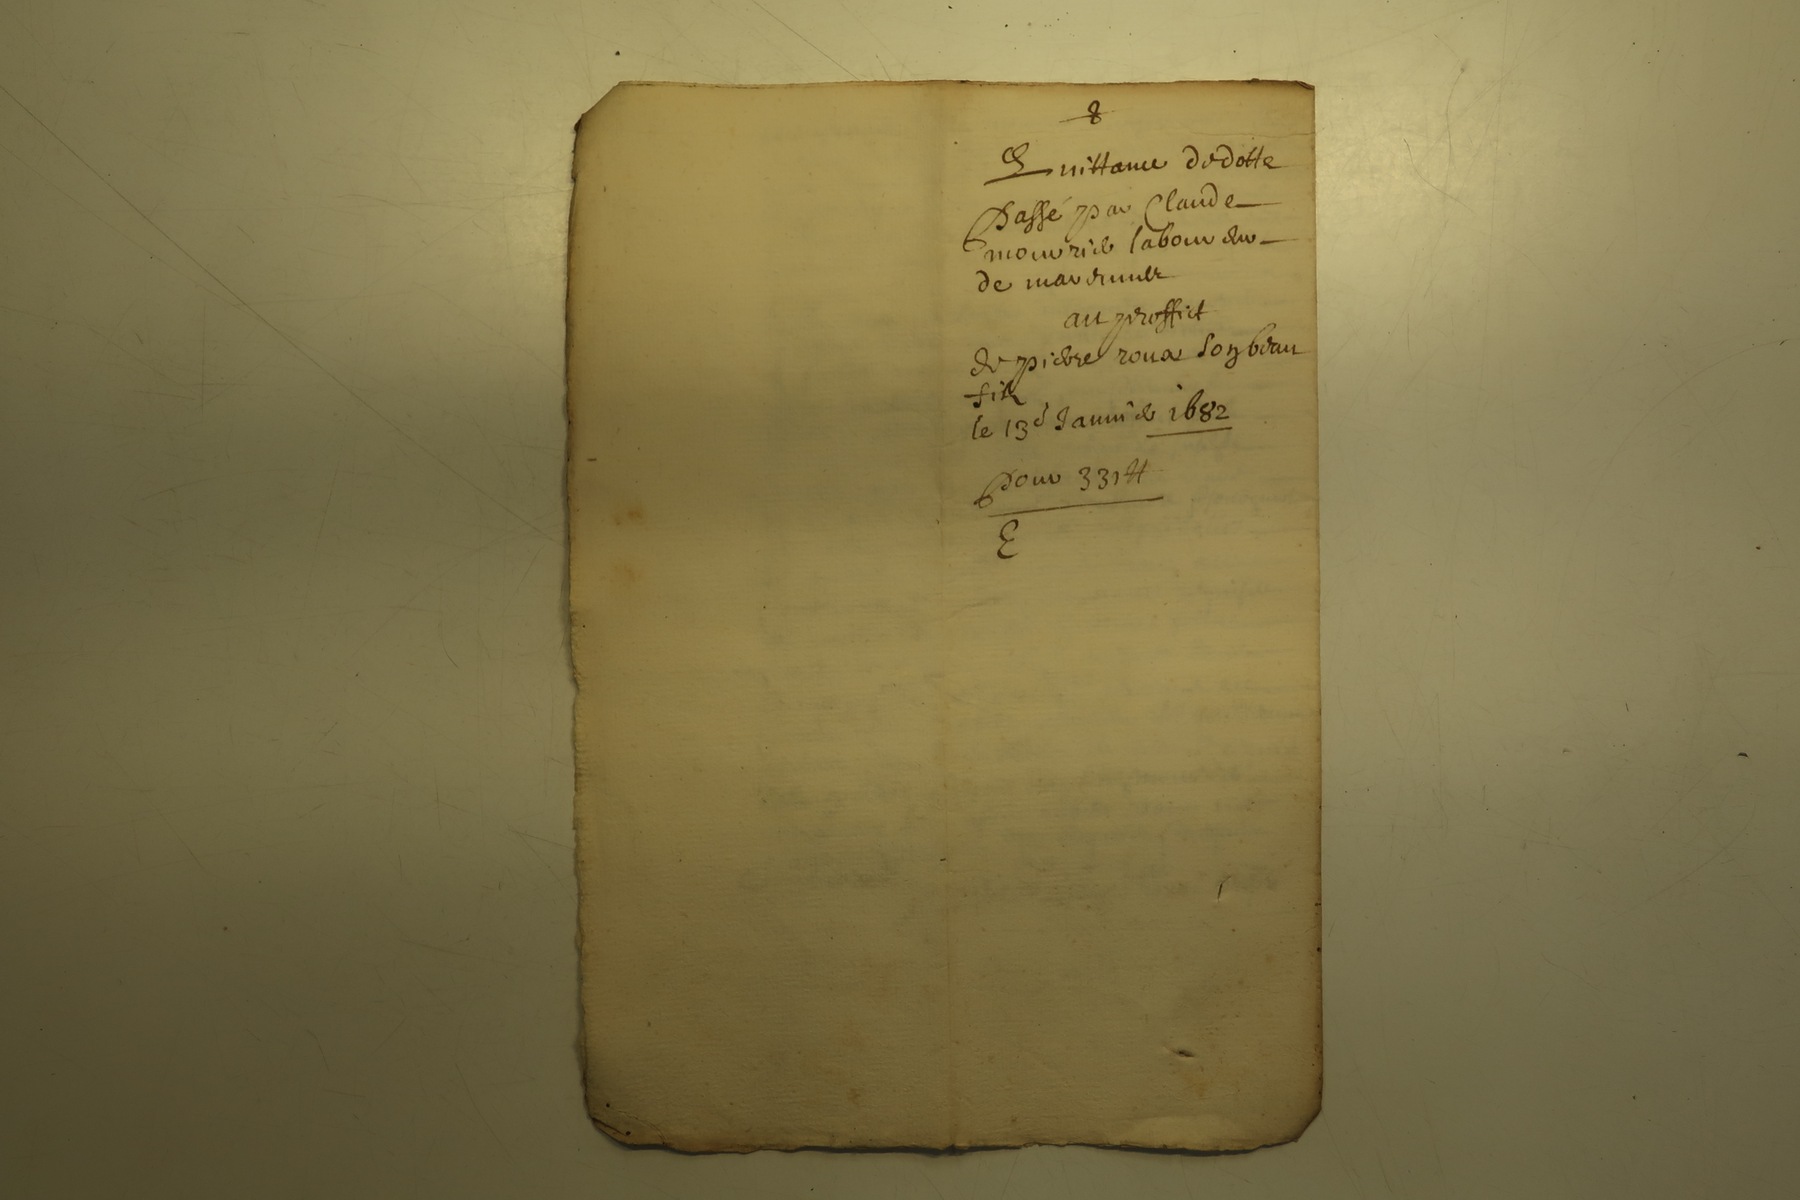 8
Quittance de dotte
Passé par Claude
mourrie laboureur
de
au proffict
de pierre roux son beau
fils
le 13e Janvie 1682
Pour 331 tt
E